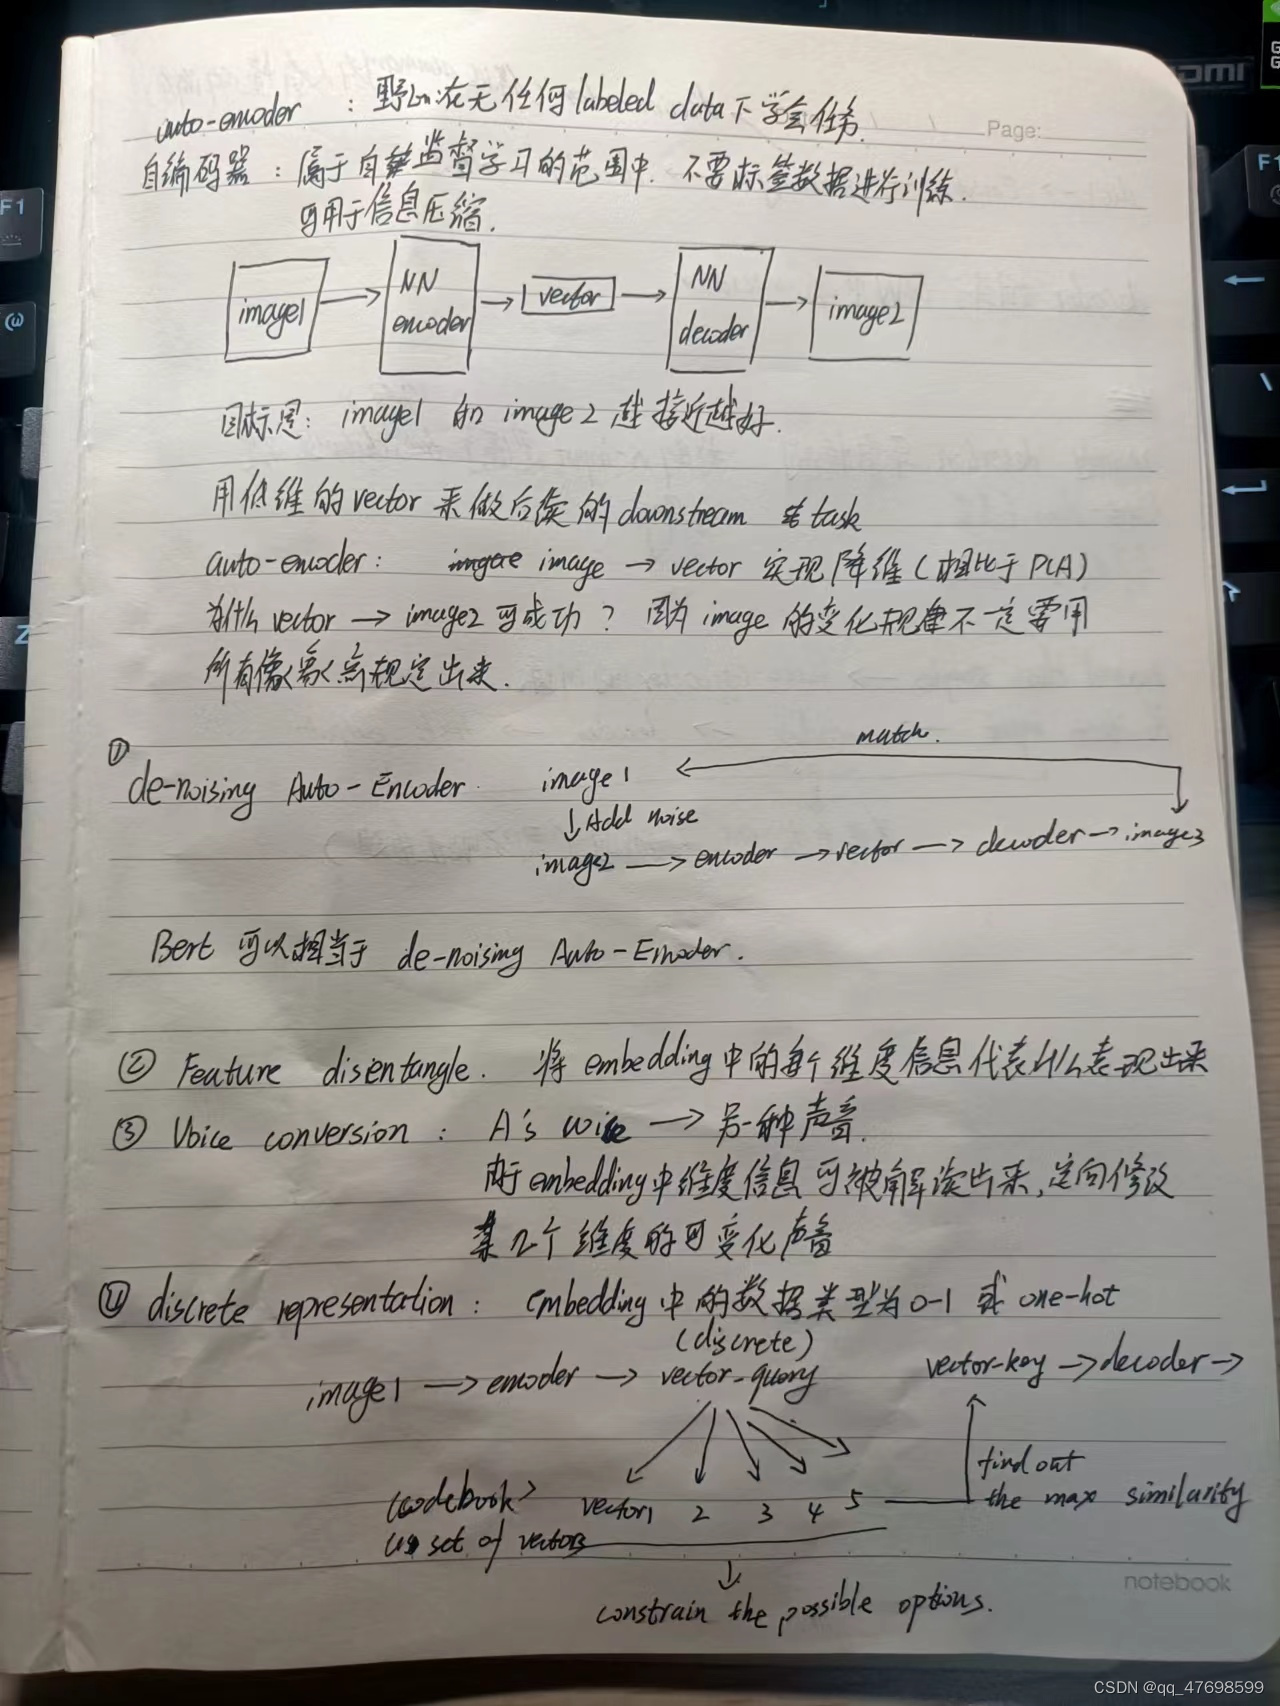 Page:
auto-encoder : 在无任何labeled data下学会任务.
自编码器 : 属于自监督学习的范围中. 不要标签数据进行训练.
可用于信息压缩.
image1 → NN encoder → vector → NN decoder → image2
目标是: image1 和 image2 越接近越好.
用低维的vector 来做后续的downstream task
auto-encoder: image → vector 实现降维(相比于PCA)
为什么 vector → image2 可成功? 因为 image 的变化规律不一定要用
所有像素点规定出来.
① match.
de-noising Auto-Encoder. image1
↓ Add noise
image2 → encoder → vector → decoder → image3
Bert 可以相当于 de-noising Auto-Encoder.
② Feature disentangle. 将 embedding中的每个维度信息代表什么表现出来
③ Voice conversion : A's voice → 另一种声音.
由于embedding中维度信息可被解读出来,定向修改
某几个维度的可变化声音
④ discrete representation: embedding 中的数据类型为0-1 或 one-hot
(discrete)
image1 → encoder → vector-query vector-key → decoder →
find out
the max similarity
(codebook) vector1 2 3 4 5
set of vectors
↓
constrain the possible options.
notebook
CSDN @qq_47698599